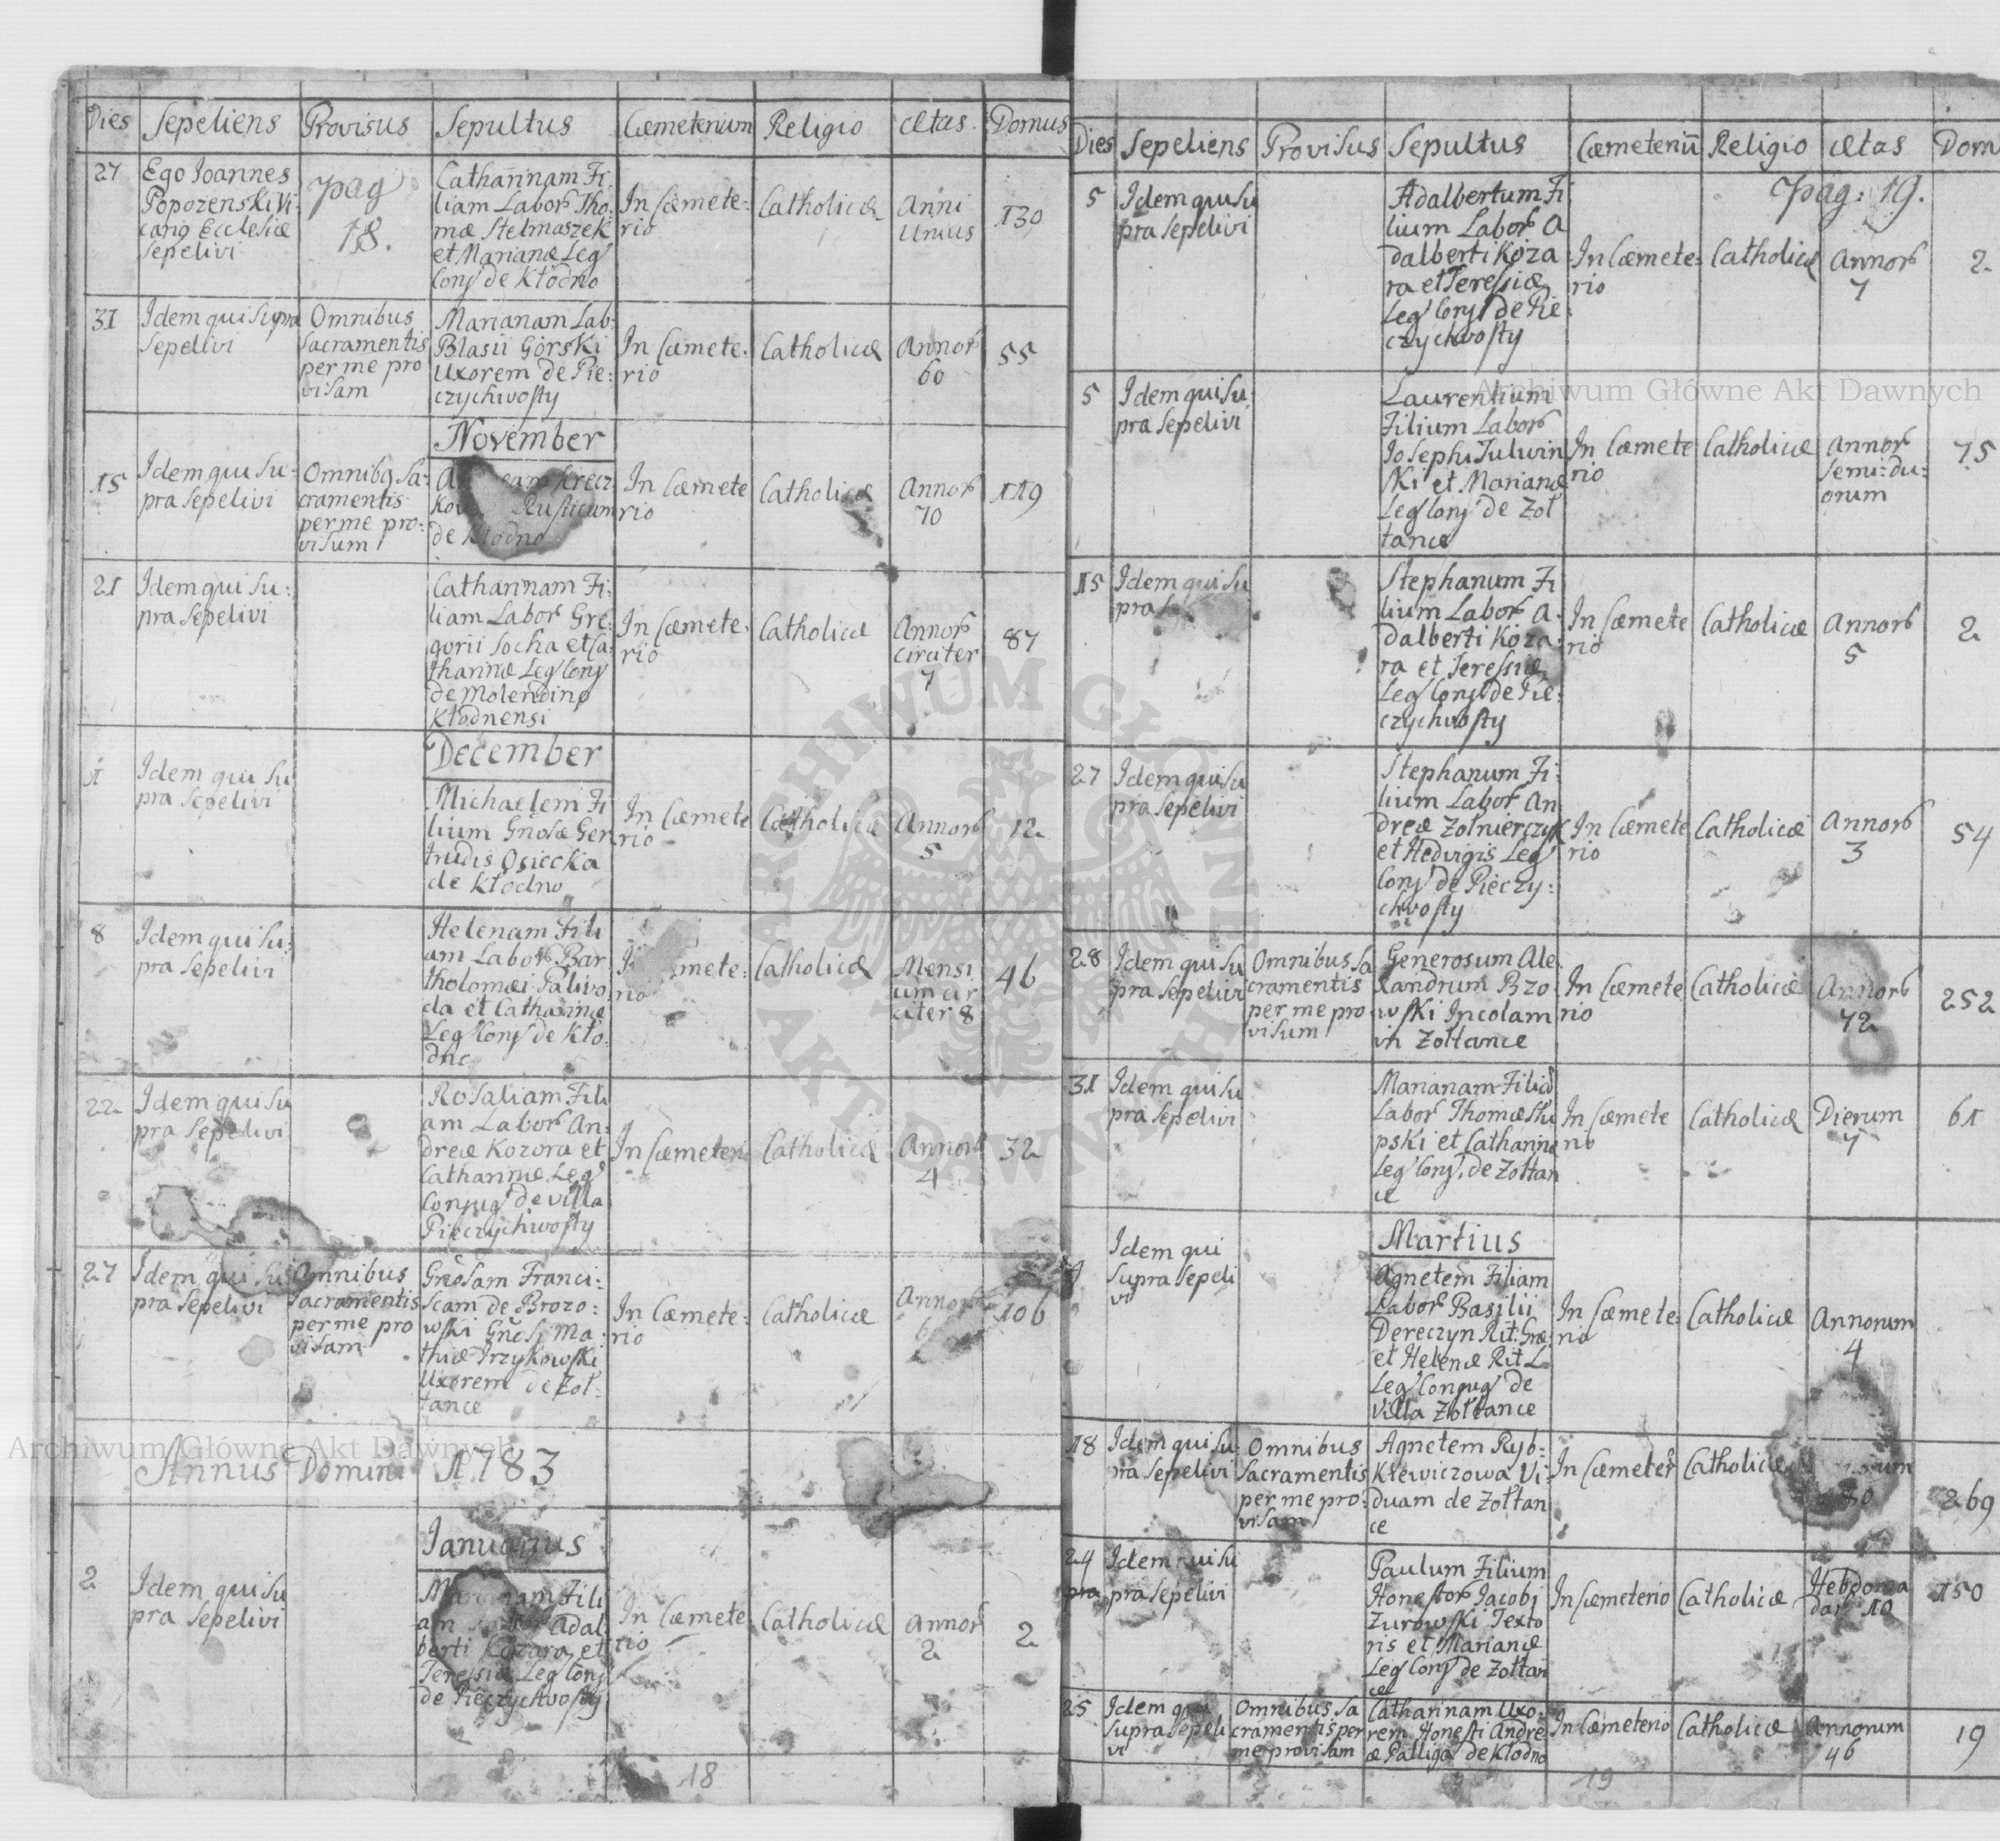 Dies Sepeliens Provisus Sepultus Cæmeterium Religio Ætas Domus
27 Ego Joannes
Popozenski Vi
cang Ecclesiæ
Sepelivi
pag
18.
Catharinam Fi:
liam Labor Tho:
mæ Stelmaszek
et Marianæ Leg
Conj de Kłodno
In Cæmete:
rio
Catholicæ
Anni
Unius
130
31 Idem qui Supra
Sepelivi
Omnibus
Sacramentis
per me pro
visam
Marianam Lab:
Blasii Górski
Uxorem de Pie:
czychwosty
In Cæmete:
rio
Catholicæ
Annor
60
55
November
15 Idem qui Su:
pra Sepelivi
Omnibq Sa:
cramentis
per me pro:
visum
Krecz
Rusticum
de Kłodno
In Cæmete
rio
Catholicæ
Annor
70
119
21 Idem qui Su:
pra Sepelivi
Catharinam Fi:
liam Labor Gre:
gorii Socha et Ca:
tharinæ Leg Conj
de Molendino
Kłodnensi
In Cæmete:
rio
Catholicæ
Annor
circiter
7
87
December
1 Idem qui Su
pra Sepelivi
Michaelem Fi
lium Gnosæ Ger
trudis Osiecka
de Kłodno
In Cæmete
rio
Catholicæ
Annor
5
12
8 Idem qui Su:
pra Sepelivi
Helenam Fili
am Labor Bar
tholomæi Palivo
da et Catharinæ
Leg Conj de Kło:
dno
mete:
rio
Catholicæ
Mensi
um cir
citer 8
46
22 Idem qui Su
pra Sepelivi
Rosaliam Fili
am Labor An:
dreæ Kozora et
Catharinæ Leg
Conjug de villa
Pieczychwosty
In Cæmeteri
Catholicæ
Annor
4
32
27 Idem qui Su
pra Sepelivi
Omnibus
Sacramentis
per me pro
visam
Gnosam Franci:
scam de Brozo:
wski Gnosi Ma:
thiæ Trzykowski
Uxorem de Zoł:
tance
In Cæmete:
rio
Catholicæ
Annor
106
Annus Domini 1783
Januarius
2 Idem qui Su
pra Sepelivi
Fili
am Adal
berti Kozara et
Teressiæ Leg Conj
de Pieczychwosty
In Cæmete
rio
Catholicæ
Annor
2
2
18
Dies Sepeliens Provisus Sepultus Cæmeteriũ Religio Ætas Dom
pag: 19.
5 Idem qui Su
pra Sepelivi
Adalbertum Fi
lium Labor A
dalberti Koza
ra et Teressiæ
Leg Conj de Pie:
czychwosty
In Cæmete:
rio
Catholicæ
Annor
7
2
5 Idem qui Su:
pra Sepelivi
Laurentium
Filium Labor
Josephi Tulwin
ski et Marianæ
Leg Conj de Zoł
tance
In Cæmete
rio
Catholicæ
Annor
Semi: du:
orum
75
15 Idem qui Su
pra
Stephanum Fi
lium Labor A:
dalberti Koza:
ra et Teressiæ
Leg Conj de Pie:
czychwosty
In Cæmete
rio
Catholicæ
Annor
5
2
27 Idem qui Su
pra Sepelivi
Stephanum Fi:
lium Labor An
dreæ Zołnierczyk
et Hedvigis Leg
Conj de Pieczy:
chwosty
In Cæmete
rio
Catholicæ
Annor
3
54
28 Idem qui Su
pra Sepelivi
Omnibus Sa
cramentis
per me pro
visum
Generosum Ale
xandrum Bzo
wski Incolam
in Zołtance
In Cæmete
rio
Catholicæ
Annor
72
252
31 Idem qui Su
pra Sepelivi
Marianam Filiã
Labor Thomæ Stu
pski et Catharinæ
Leg Conj. de Zołtan
ce
In Cæmete
rio
Catholicæ
Dierum
7
61
Martius
Idem qui
Supra Sepeli
vi
Agnetem Filiam
Labor Basilii
Dereczyn Rit: Græ
et Helenæ Rit L
Leg Conjug de
villa Zołtance
In Cæmete:
rio
Catholicæ
Annorum
4
18 Idem qui Su
pra Sepelivi
Omnibus
Sacramentis
per me pro:
visam
Agnetem Ryb:
kłewiczowa Vi:
duam de Zołtan
ce
In Cæmeter
Catholicæ
80
269
24 Idem qui Su
pra pra Sepelivi
Paulum Filium
Honestor Jacobi
Zurowski Texto
ris et Marianæ
Leg Conj de Zołtan
ce
In Cæmeterio
Catholicæ
Hebdoma
dar 10
150
25 Idem qui
Supra Sepeli
vi
Omnibus Sa
cramentis per
me provisam
Catharinam Uxo:
rem Honesti Andre
æ Palliga de Kłodno
In Cæmeterio
Catholicæ
Annorum
46
19
19
Archiwum Główne Akt Dawnych
Archiwum Główne Akt Dawnych
ARCHIWUM GŁÓWNE
AKT DAWNYCH